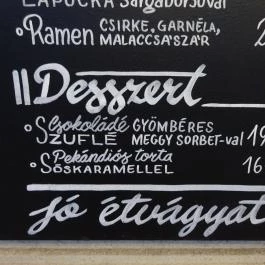 LAPOCKA Sárgaborsóval
Ramen CSIRKE, GARNÉLA,
MALACCSÁSZÁR 2
Desszert
Csokoládé GYÖMBÉRES
SZUFLÉ MEGGY SORBET-val 19
Pekándiós torta
SÓSKARAMELLEL 16
Jó étvágyat